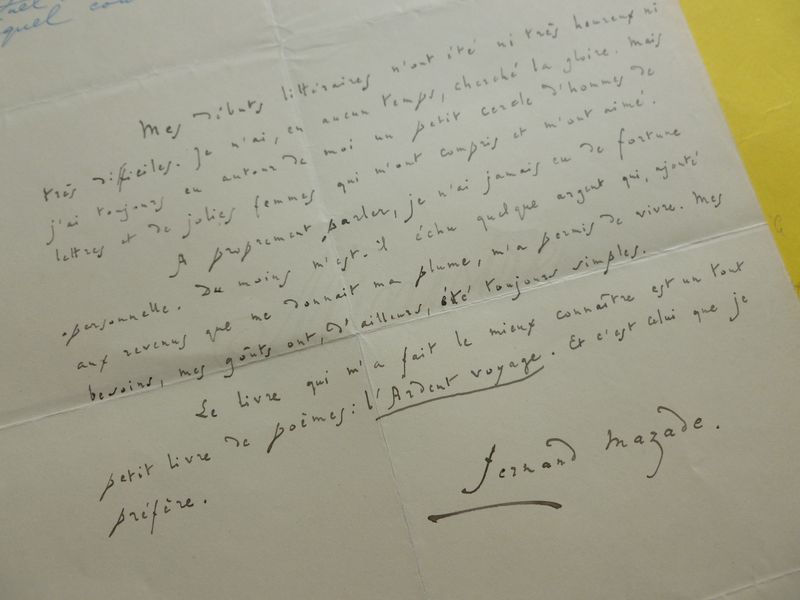 quel con
Mes débuts littéraires n'ont été ni très heureux ni
très difficiles. Je n'ai, en aucun temps, cherché la gloire. Mais
j'ai toujours eu autour de moi un petit cercle d'hommes de
lettres et de jolies femmes qui m'ont compris et m'ont aimé.
A proprement parler, je n'ai jamais eu de fortune
personnelle. Du moins m'est-il échu quelque argent qui, ajouté
aux revenus que me donnait ma plume, m'a permis de vivre. Mes
besoins, mes goûts ont, d'ailleurs, été toujours simples.
Le livre qui m'a fait le mieux connaître est un tout
petit livre de poèmes : l'Ardent voyage. Et c'est celui que je
préfère.
Fernand Mazade.